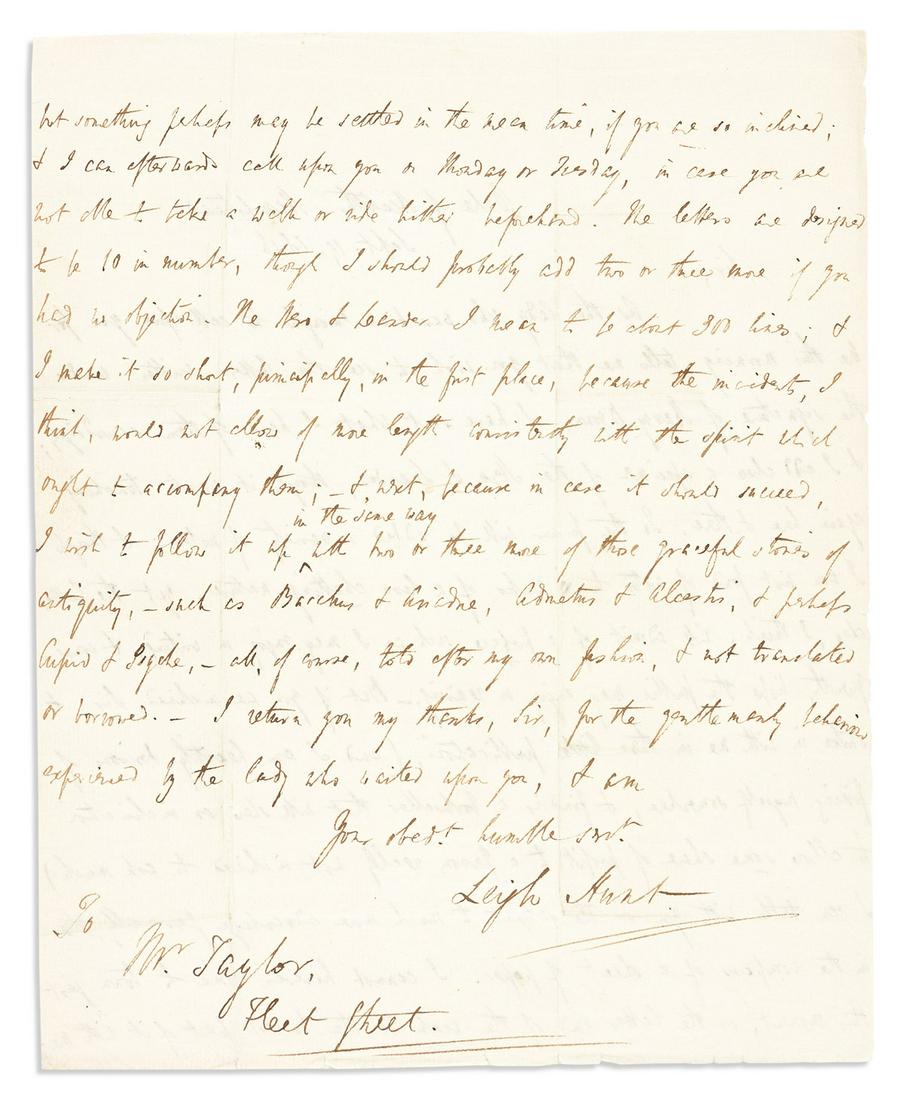 but something perhaps may be settled in the mean time, if you are so inclined;
& I can afterwards call upon you on Monday or Tuesday, in case you are
not able to take a walk or ride hither beforehand. The letters are designed
to be 10 in number, though I should probably add two or three more if you
had no objection. The Hero & Leander I mean to be about 300 lines; &
I make it so short, principally, in the first place, because the incidents, I
think, would not allow of more length consistently with the spirit which
ought to accompany them; – & next, because in case it should succeed,
in the same way
I wish to follow it up ^ with two or three more of those graceful stories of
antiquity, – such as Bacchus & Ariadne, Admetus & Alcestis, & perhaps
Cupid & Psyche, – all, of course, told after my own fashion, & not translated
or borrowed. – I return you my thanks, Sir, for the gentlemanly behaviour
experienced by the lady who waited upon you, & am
Your obedt. humble servt.
Leigh Hunt
To
Mr. Taylor,
Fleet Street.